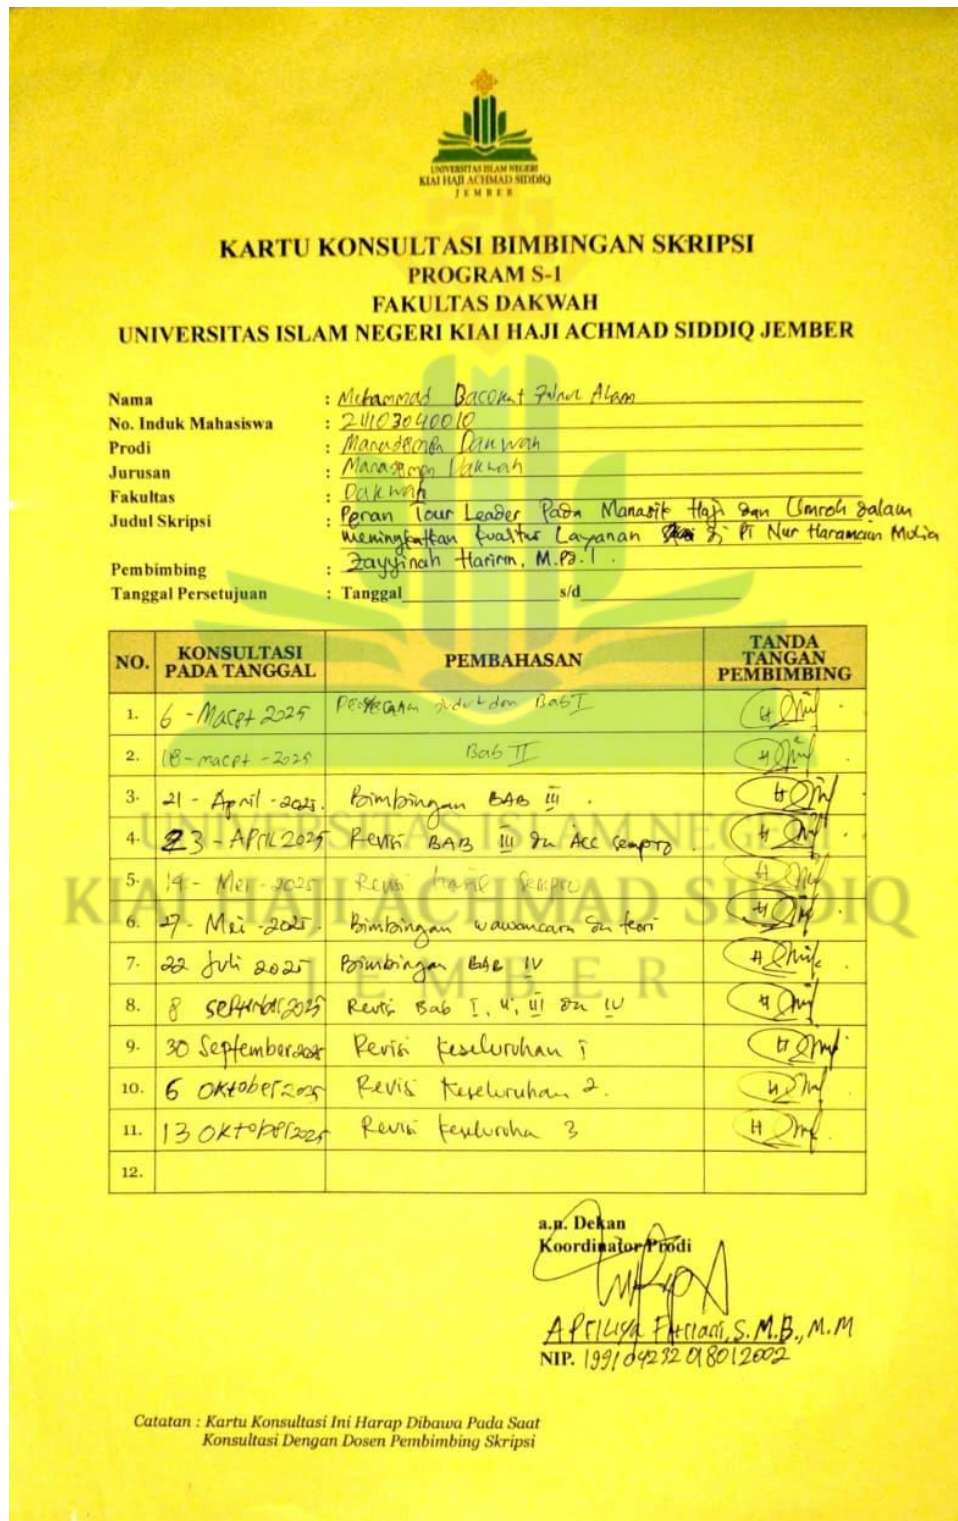 UNIVERSITAS ISLAM NEGERI
KIAI HAJI ACHMAD SIDDIQ
JEMBER
KARTU KONSULTASI BIMBINGAN SKRIPSI
PROGRAM S-1
FAKULTAS DAKWAH
UNIVERSITAS ISLAM NEGERI KIAI HAJI ACHMAD SIDDIQ JEMBER
Nama : Muhammad Alam
No. Induk Mahasiswa : 211103040010
Prodi : Manajemen Dakwah
Jurusan : Manajemen Dakwah
Fakultas : Dakwah
Judul Skripsi : Peran Tour Leader Pada Manasik Haji dan Umroh dalam
meningkatkan kualitas Layanan di PT Nur Haramain Mulia
Pembimbing : Zayyinah Haririn, M.Pd.I.
Tanggal Persetujuan : Tanggal s/d
NO. KONSULTASI PADA TANGGAL PEMBAHASAN TANDA TANGAN PEMBIMBING
1. 6 - Maret 2025 judul dan Bab I
2. 18 - maret - 2025 Bab II
3. 21 - April - 2025. Bimbingan BAB III.
4. 23 - APRIL 2025 Revisi BAB III dan Acc sempro.
5. 14 - Mei - 2025 Revisi hasil Sempro
6. 27 - Mei - 2025. Bimbingan wawancara dan teori
7. 22 Juli 2025 Bimbingan BAB IV
8. 8 September 2025 Revisi Bab I, II, III dan IV
9. 30 September 2025 Revisi Keseluruhan 1
10. 6 Oktober 2025 Revisi Keseluruhan 2.
11. 13 Oktober 2025 Revisi keseluruha 3
12.
UNIVERSITAS ISLAM NEGERI
KIAI HAJI ACHMAD SIDDIQ
JEMBER
a.n. Dekan
Koordinator Prodi
Aprilya Fitriani, S.M.B., M.M
NIP. 199104232018012002
Catatan : Kartu Konsultasi Ini Harap Dibawa Pada Saat
Konsultasi Dengan Dosen Pembimbing Skripsi